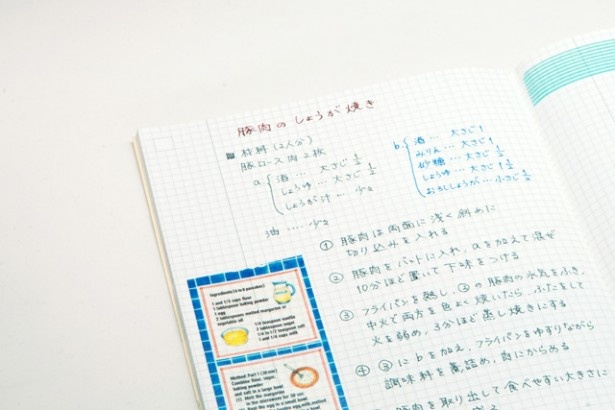 豚肉のしょうが焼き
材料(2人分)
豚ロース肉 2枚
a 酒 … 大さじ 1/2
しょうゆ … 大さじ 1/2
しょうが汁 … 少々
油 .... 少々
b 酒 … 大さじ 1
みりん … 大さじ 1
砂糖 … 大さじ 1
しょうゆ … 大さじ 1 1/2
おろししょうが … 小さじ 1/2
① 豚肉は両面に浅く斜めに
切り込みを入れる
② 豚肉をバットに入れ、aを加えて混ぜ
10分ほど置いて下味をつける
③ フライパンを熱し、②の豚肉の水気をふき、
中火で両方を色よく焼いたら、ふたをして
火を弱め、3分ほど蒸し焼きにする
④ ③にbを加え、フライパンをゆすりながら
調味料を煮詰め、肉にからめる
豚肉を取り出して食べやすい大きさに
Ingredients (4 to 6 pancakes)
1 and 1/2 cups flour
1 tablespoon baking powder
1 egg
2 tablespoons melted margarine or
vegetable oil
1/4 teaspoon vanilla
2 tablespoons sugar
1/4 to 1/2 teaspoon salt
1 and 1/4 cups milk
Method: Part 1 (10 min)
Combine flour, sugar,
baking powder
and salt in a large bowl
Melt the margarine
in the microwave for 30 sec
Beat the egg in a small bowl